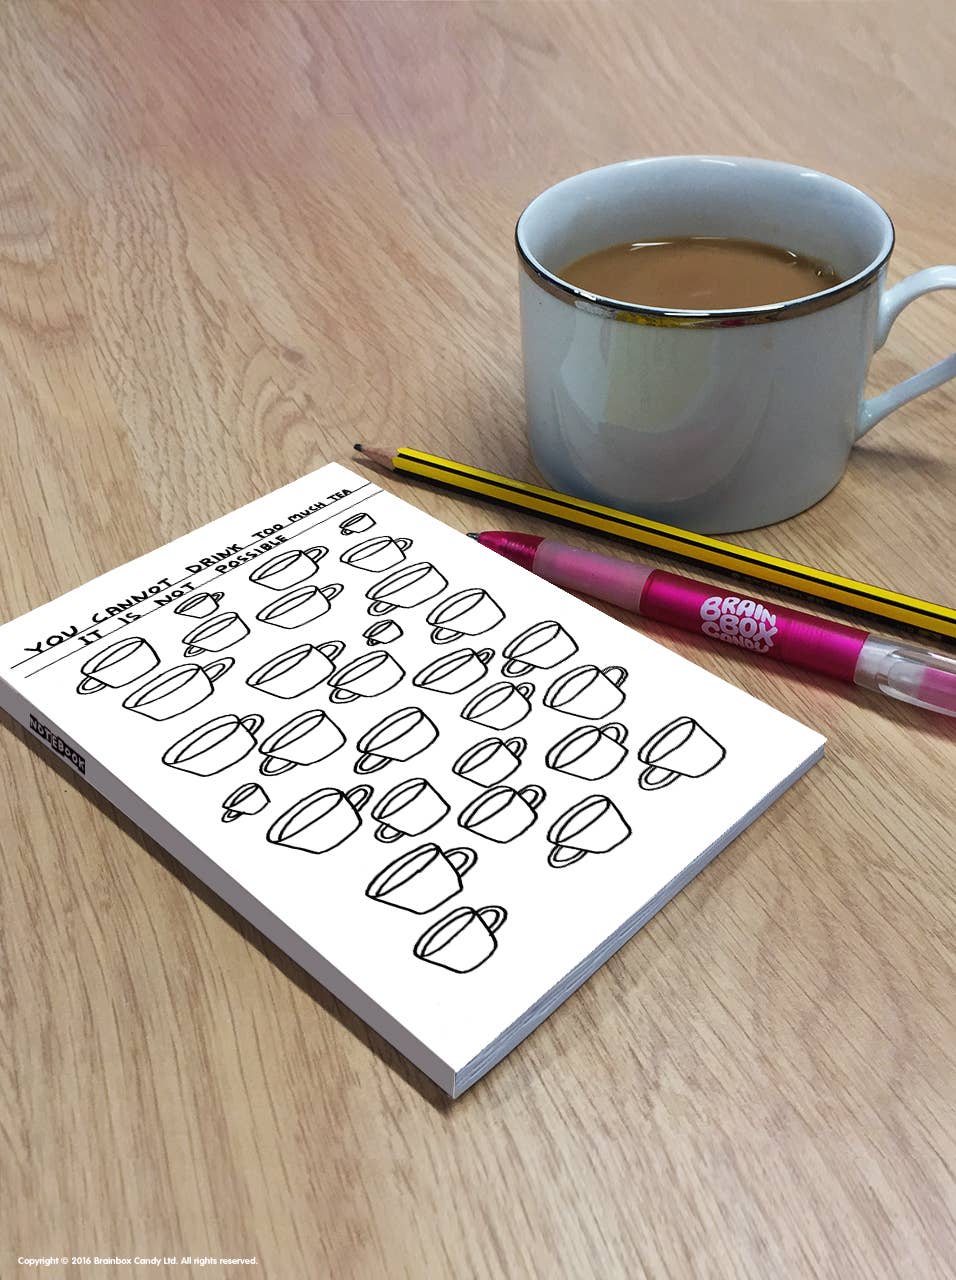 YOU CANNOT DRINK TOO MUCH TEA
IT IS NOT POSSIBLE
NOTEBOOK
BRAIN
BOX
CANDY
Copyright © 2016 Brainbox Candy Ltd. All rights reserved.